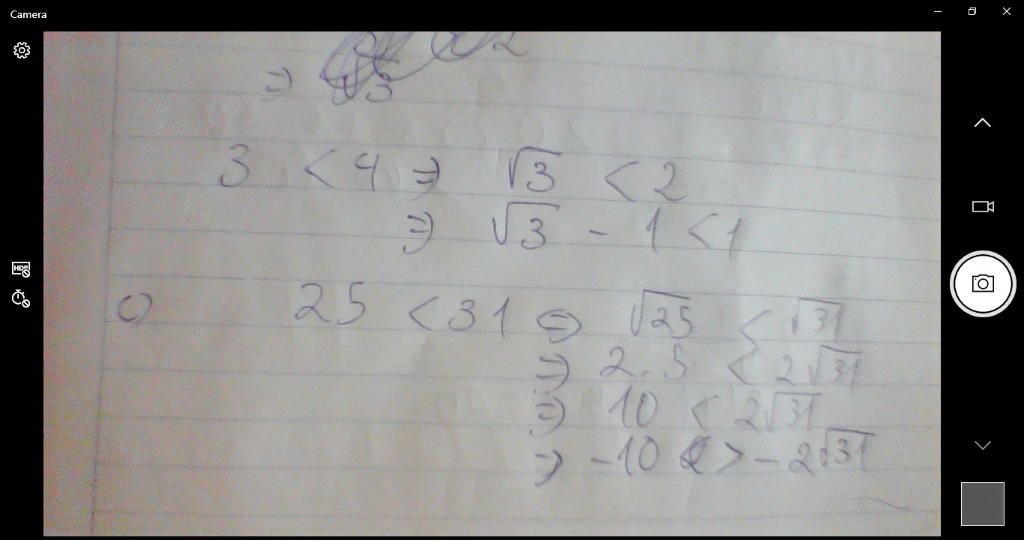 Camera
⇒ √3
3 < 4 ⇒ √3 < 2
⇒ √3 - 1 < 1
c) 25 < 31 ⇒ √25 < √31
⇒ 2.5 < 2√31
⇒ 10 < 2√31
⇒ -10 > -2√31